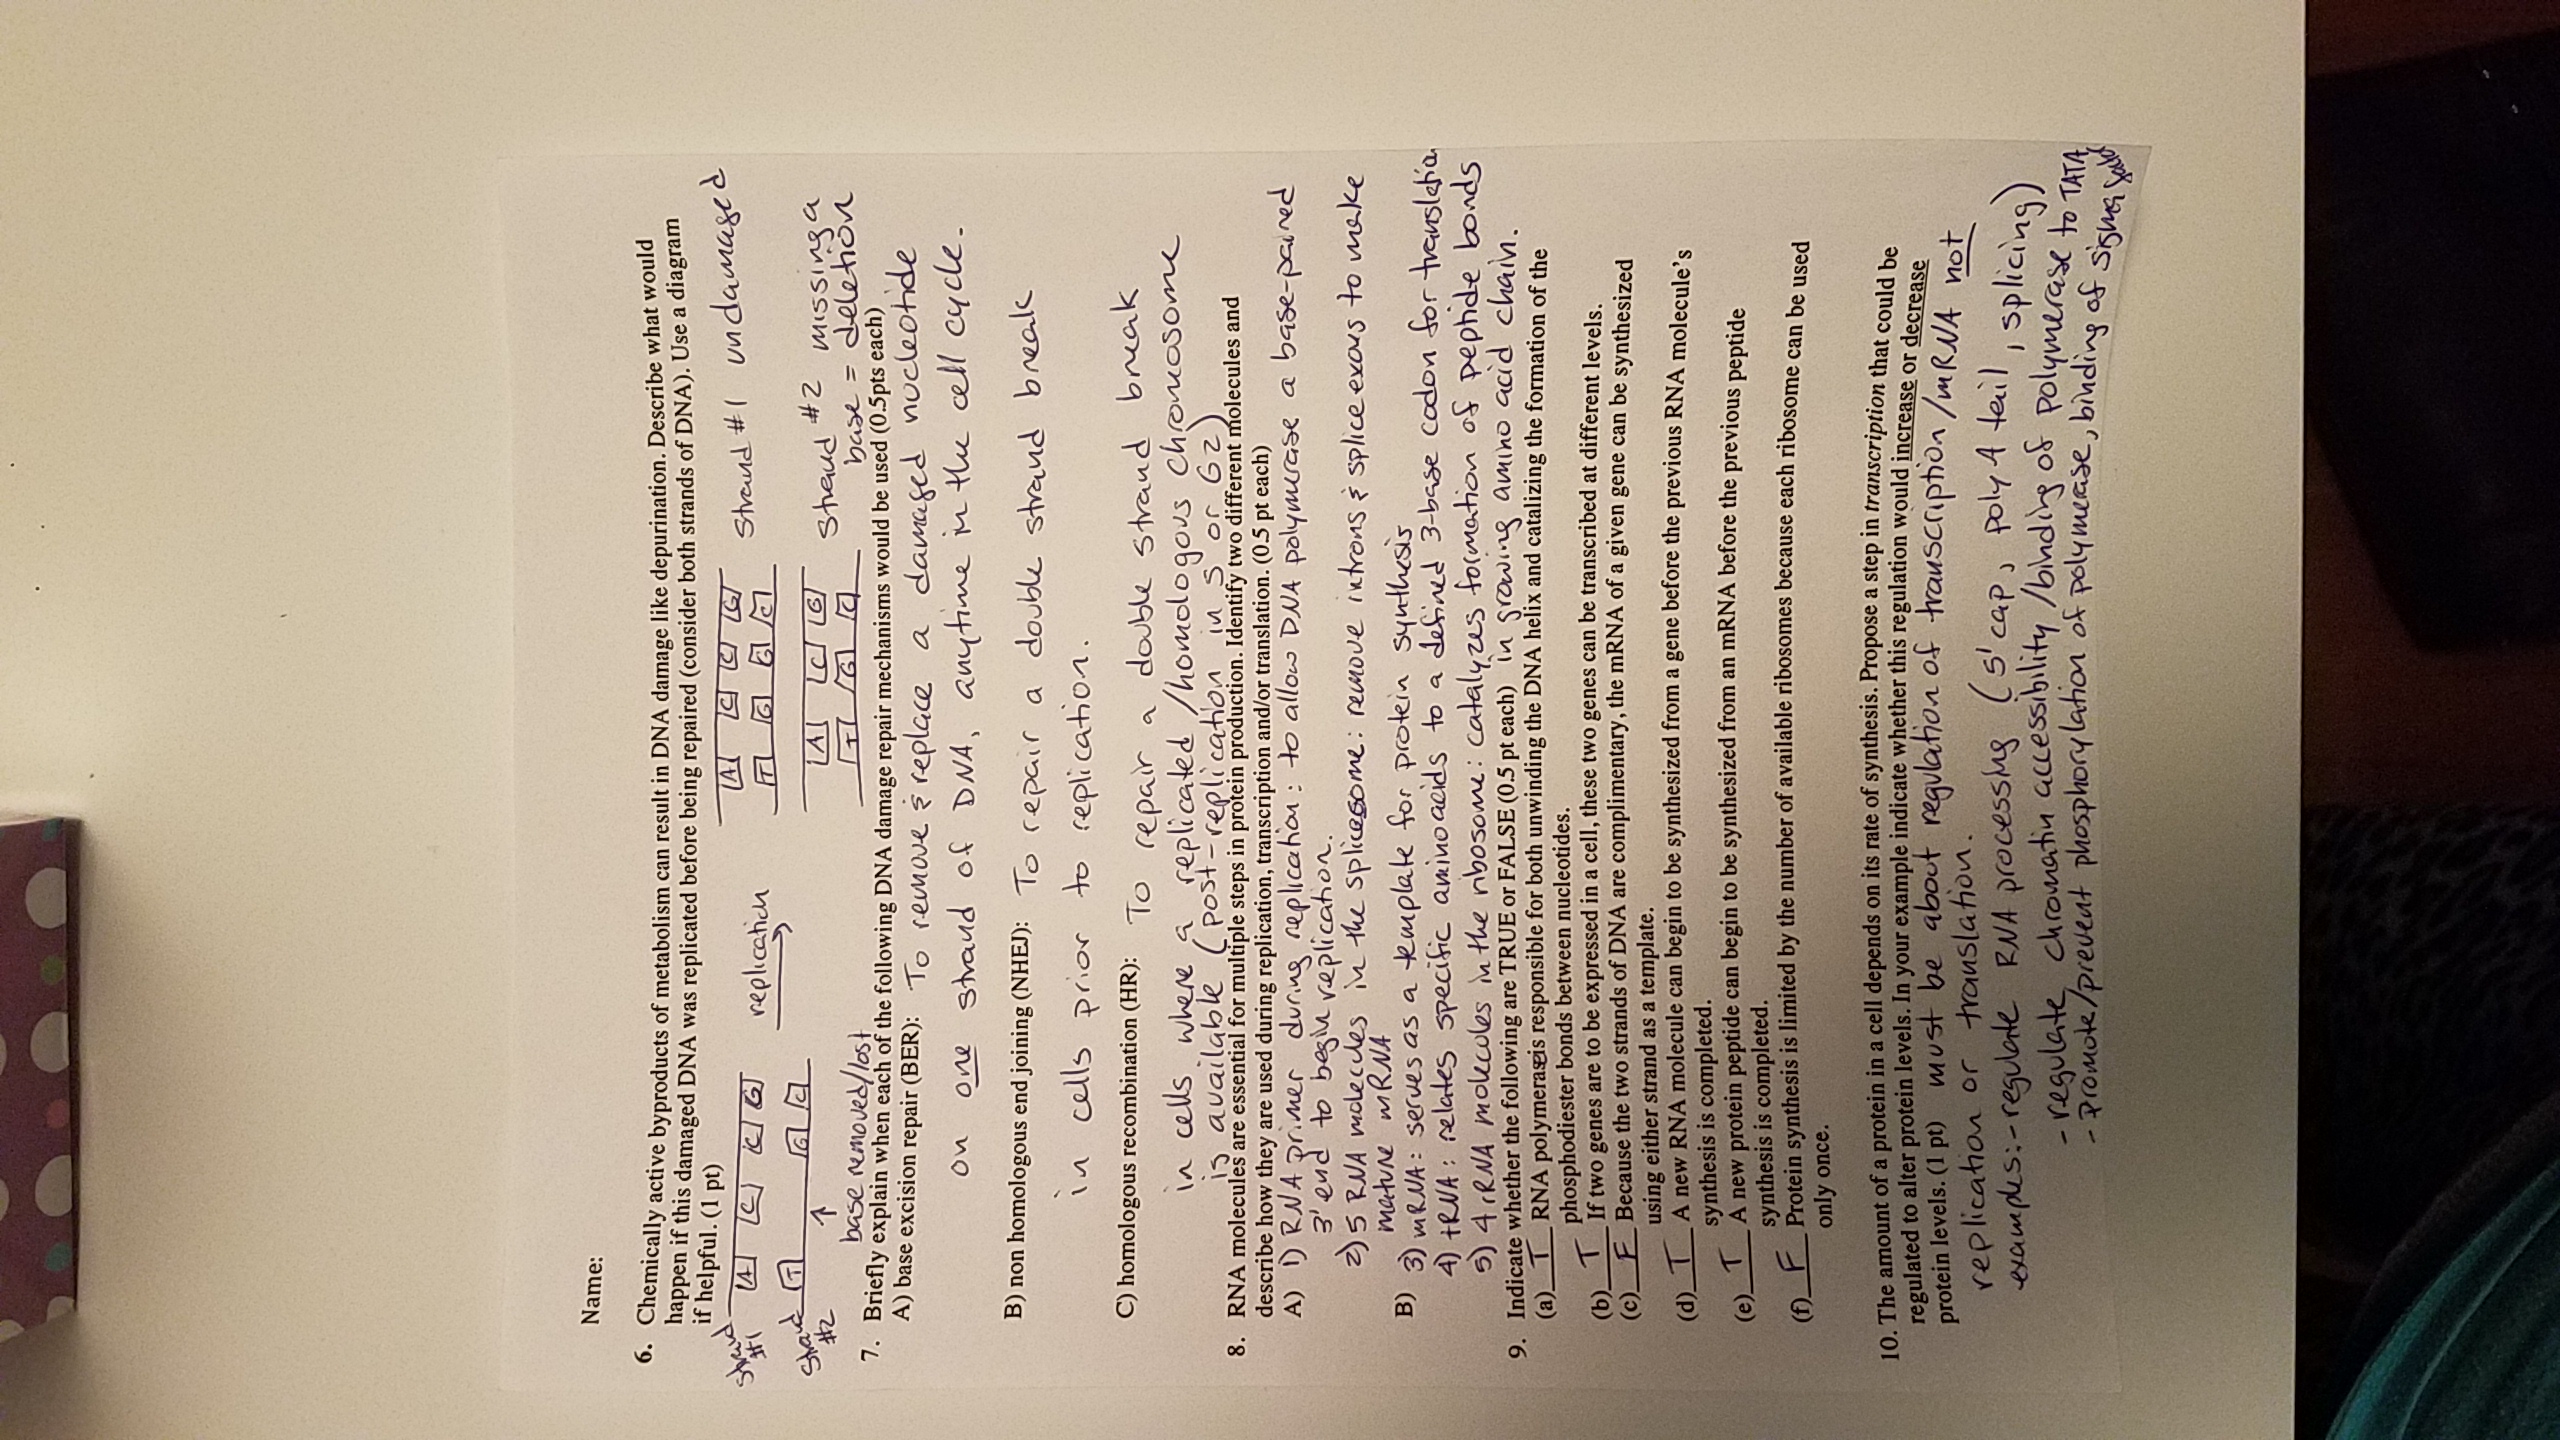 Name:
6. Chemically active byproducts of metabolism can result in DNA damage like depurination. Describe what would
happen if this damaged DNA was replicated before being repaired (consider both strands of DNA). Use a diagram
if helpful. (1 pt)
Strand #1 A C C G replication A C C G Strand #1 undamaged
T G G C
Strand #2 T G C A C G Strand #2 missing a
T G C base = deletion
base removed/lost
7. Briefly explain when each of the following DNA damage repair mechanisms would be used (0.5pts each)
A) base excision repair (BER): To remove & replace a damaged nucleotide
on one strand of DNA, anytime in the cell cycle.
B) non homologous end joining (NHEJ): To repair a double strand break
in cells prior to replication.
C) homologous recombination (HR): To repair a double strand break
in cells where a replicated /homologous chromosome
is available (post-replication in S or G2)
8. RNA molecules are essential for multiple steps in protein production. Identify two different molecules and
describe how they are used during replication, transcription and/or translation. (0.5 pt each)
A) 1) RNA primer during replication: to allow DNA polymerase a base-paired
3' end to begin replication.
2) 5 RNA molecules in the splicesome: remove introns & splice exons to make
mature mRNA
B) 3) mRNA: serves as a template for protein synthesis
4) tRNA: relates specific amino acids to a defined 3-base codon for translation
5) 4 rRNA molecules in the ribosome: catalyzes formation of peptide bonds
in growing amino acid chain.
9. Indicate whether the following are TRUE or FALSE (0.5 pt each)
(a) T RNA polymerase is responsible for both unwinding the DNA helix and catalizing the formation of the
phosphodiester bonds between nucleotides.
(b) T If two genes are to be expressed in a cell, these two genes can be transcribed at different levels.
(c) F Because the two strands of DNA are complimentary, the mRNA of a given gene can be synthesized
using either strand as a template.
(d) T A new RNA molecule can begin to be synthesized from a gene before the previous RNA molecule's
synthesis is completed.
(e) T A new protein peptide can begin to be synthesized from an mRNA before the previous peptide
synthesis is completed.
(f) F Protein synthesis is limited by the number of available ribosomes because each ribosome can be used
only once.
10. The amount of a protein in a cell depends on its rate of synthesis. Propose a step in transcription that could be
regulated to alter protein levels. In your example indicate whether this regulation would increase or decrease
protein levels. (1 pt) must be about regulation of transcription /mRNA not
replication or translation.
examples: - regulate RNA processing (5' cap, poly A tail, splicing)
- regulate chromatin accessibility /binding of polymerase to TATA
- Promote/prevent phosphorylation of polymerase, binding of sigma factor